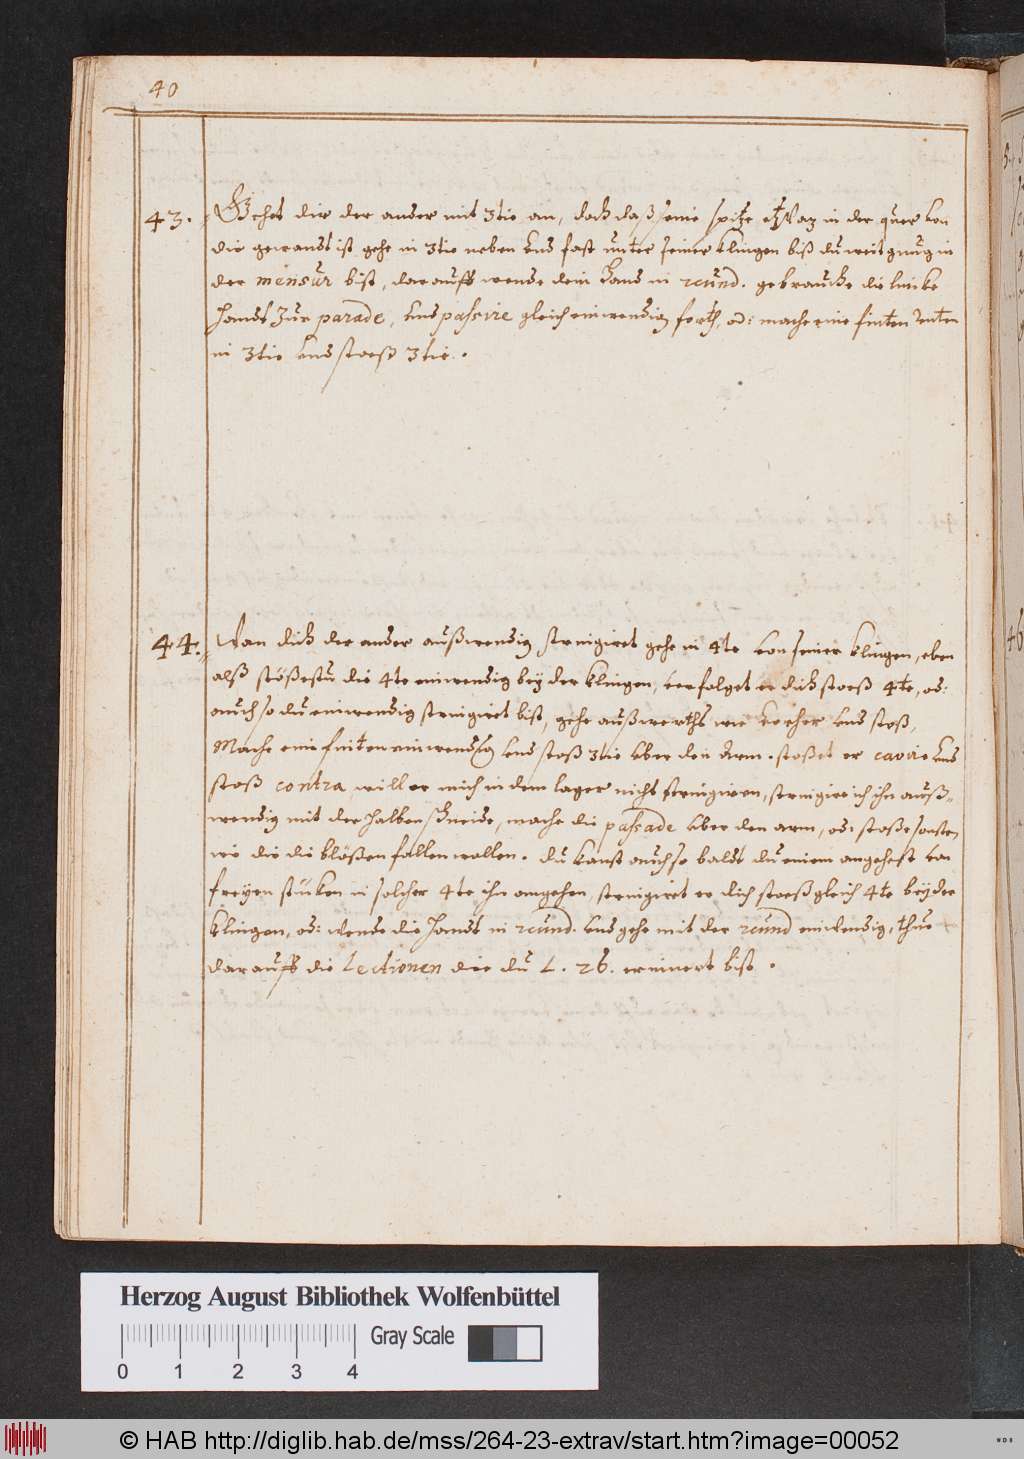 40
43. Gehet dir der ander mit 3tie an, doch daß seine spitze etwaz in der quer von
dir gewandt ist gehe in 3tie neben vnd fast unter seiner klingen biß du weit gnug in
der mensur bist, darauff wende dein hand in 2cund. gebrauche die lincke
handt zur parade, vnd passire gleich einwendig forth, od: mache eine finten
in 3tie vnd stoeß 3tie.
44. Wan dich der ander außwendig stringiret gehe in 4te von seiner klingen, eben
alß stößestu die 4te einwendig bey der klingen, verfolget er dich stoeß 4te, od:
auch so du einwendig stringiret bist, gehe außwerths wie vorher vnd stoß,
Mache eine finten einwendig vnd stoß 3tie vber den Arm. stoßet er cavire vnd
stoß contra, will er mich in dem lager nicht stringiren, stringire ich ihn auß-
wendig mit der halben schneide, mache die passade vber den arm, od: stoße sonsten
wie dir die blößen fallen wollen. du kanst auch so baldt du einem angehest von
freyen stüken in solcher 4te ihn angehen, stringiret er dich stoeß gleich 4te bey der
klingen, od: wende die handt in 2cund. vnd gehe mit der 2cund einwendig, thue
darauff die lectionen die du L. 26. erinnert bist.
Herzog August Bibliothek Wolfenbüttel
0 1 2 3 4
Gray Scale
© HAB http://diglib.hab.de/mss/264-23-extrav/start.htm?image=00052